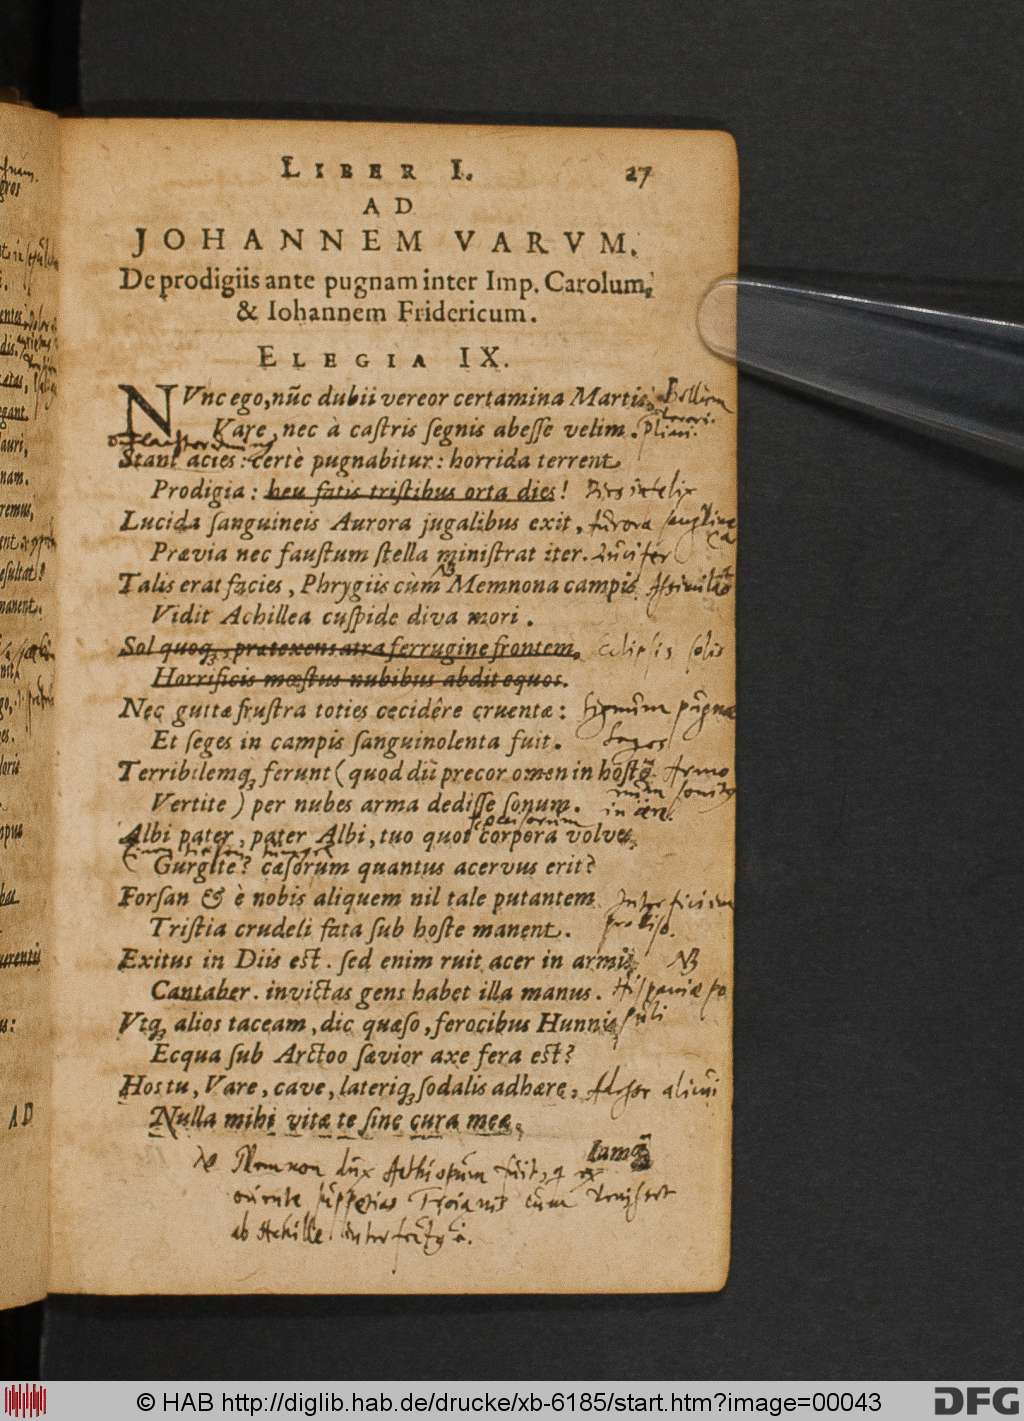 LIBER I. 27
AD
JOHANNEM VARVM.
De prodigiis ante pugnam inter Imp. Carolum,
& Iohannem Fridericum.
ELEGIA IX.
NVnc ego, nũc dubii vereor certamina Martis,
Vare, nec à castris segnis abesse velim.
Stant acies: certè pugnabitur: horrida terrent
Prodigia: heu fatis tristibus orta dies! Dies infelix
Lucida sanguineis Aurora jugalibus exit, Aurora
Prævia nec faustum stella ministrat iter. Lucifer
Talis erat facies, Phrygiis cùm Memnona campis
Vidit Achillea cuspide diva mori.
Sol quoq;, prætexens atra ferrugine frontem, Eclipsis solis
Horrificis mœstus nubibus abdit equos.
Nec guttæ frustra toties cecidêre cruentæ: signum pugnæ
Et seges in campis sanguinolenta fuit. Seges
Terribilemq; ferunt (quod dii precor omen in hostẽ
Vertite) per nubes arma dedisse sonum. in aere.
Albi pater, pater Albi, tuo quot corpora volves
Gurgite? cæsorum quantus acervus erit?
Forsan & è nobis aliquem nil tale putantem
Tristia crudeli fata sub hoste manent.
Exitus in Diis est. sed enim ruit acer in armis NB
Cantaber. invictas gens habet illa manus. Hispaniæ po
Vtq; alios taceam, dic quæso, ferocibus Hunnis puli
Ecqua sub Arctoo sævior axe fera est?
Hos tu, Vare, cave, lateriq; sodalis adhære,
Nulla mihi vitæ te sine cura meæ.
Iamq;
Memnon dux Aethiopum fuit, q ex
oriente suppetias Troianis cum venisset
ab Achille interfectus è.
AD
© HAB http://diglib.hab.de/drucke/xb-6185/start.htm?image=00043
DFG